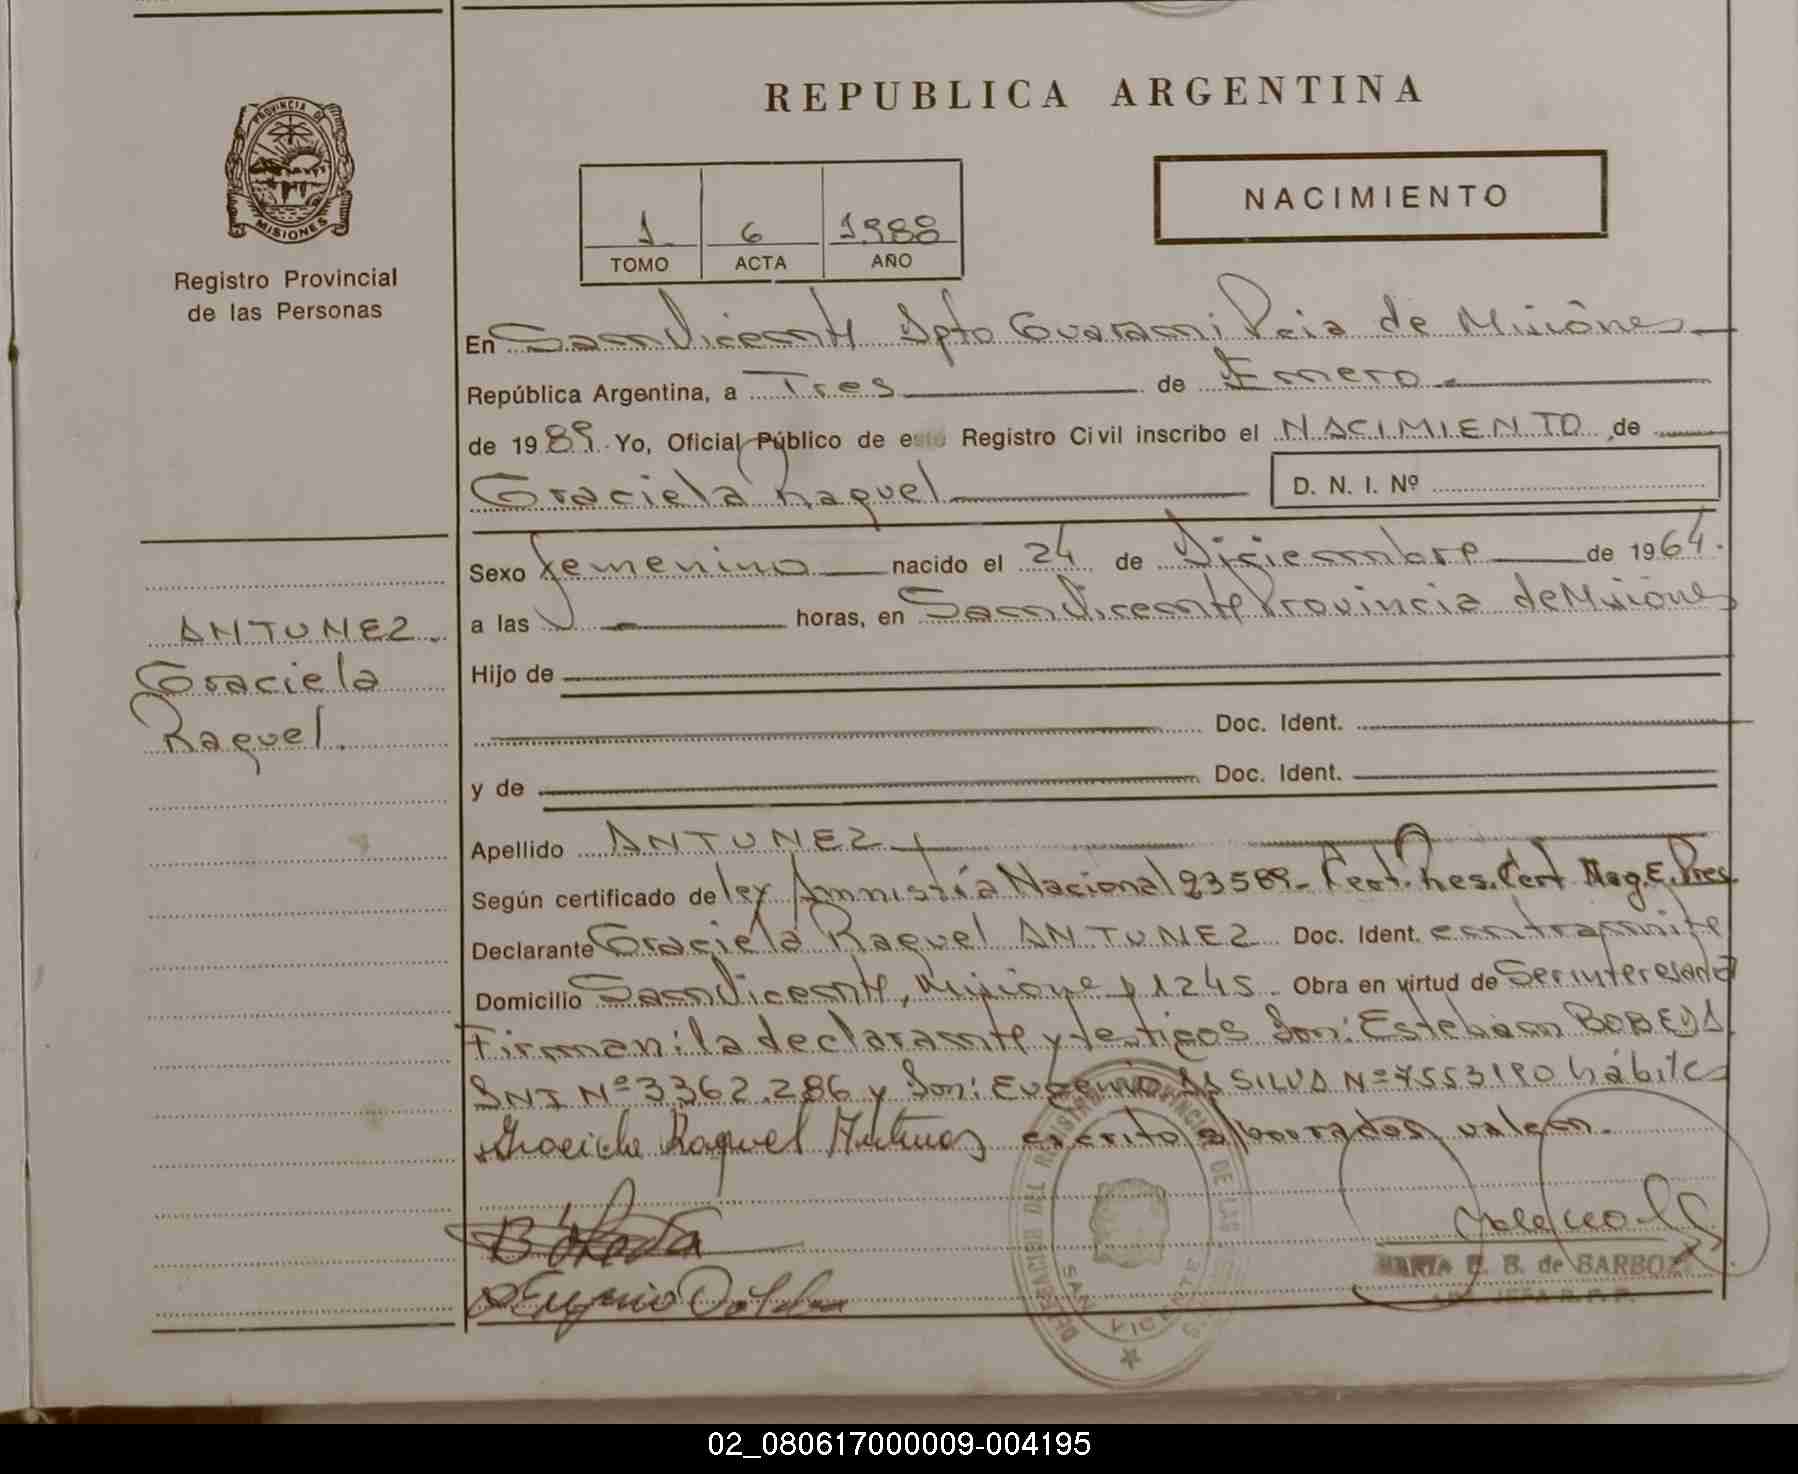 REPUBLICA ARGENTINA
PROVINCIA DE
MISIONES
Registro Provincial
de las Personas
NACIMIENTO
1 6 1988
TOMO ACTA AÑO
En San Vicente Dpto Guarani Pcia de Misiones
República Argentina, a Tres de Enero
de 1989 Yo, Oficial Público de este Registro Civil inscribo el NACIMIENTO de
Graciela Raquel D. N. I. Nº
Sexo femenino nacido el 24 de Diciembre de 1964.
a las horas, en San Vicente Provincia de Misiones
ANTUNEZ.
Graciela
Raquel.
Hijo de
Doc. Ident.
y de Doc. Ident.
Apellido ANTUNEZ
Según certificado de ley Amnistía Nacional 23589- Cert. Nes. Cert Neg. E. Pres.
Declarante Graciela Raquel ANTUNEZ Doc. Ident. en tramite
Domicilio San Vicente, Misiones 1245. Obra en virtud de Ser interesada
Firman: la declarante y testigos Don: Esteban BOBEDA
DNI Nº 3362.286 y Don: Eugenio DA SILVA Nº 7553190 hábiles
Graciela Raquel Antunez escrito s/borrados valen.
DELEGACION DEL REGISTRO PROVINCIAL DE LAS
SAN VICENTE
MARIA E. B. de BARBOZA
02_080617000009-004195